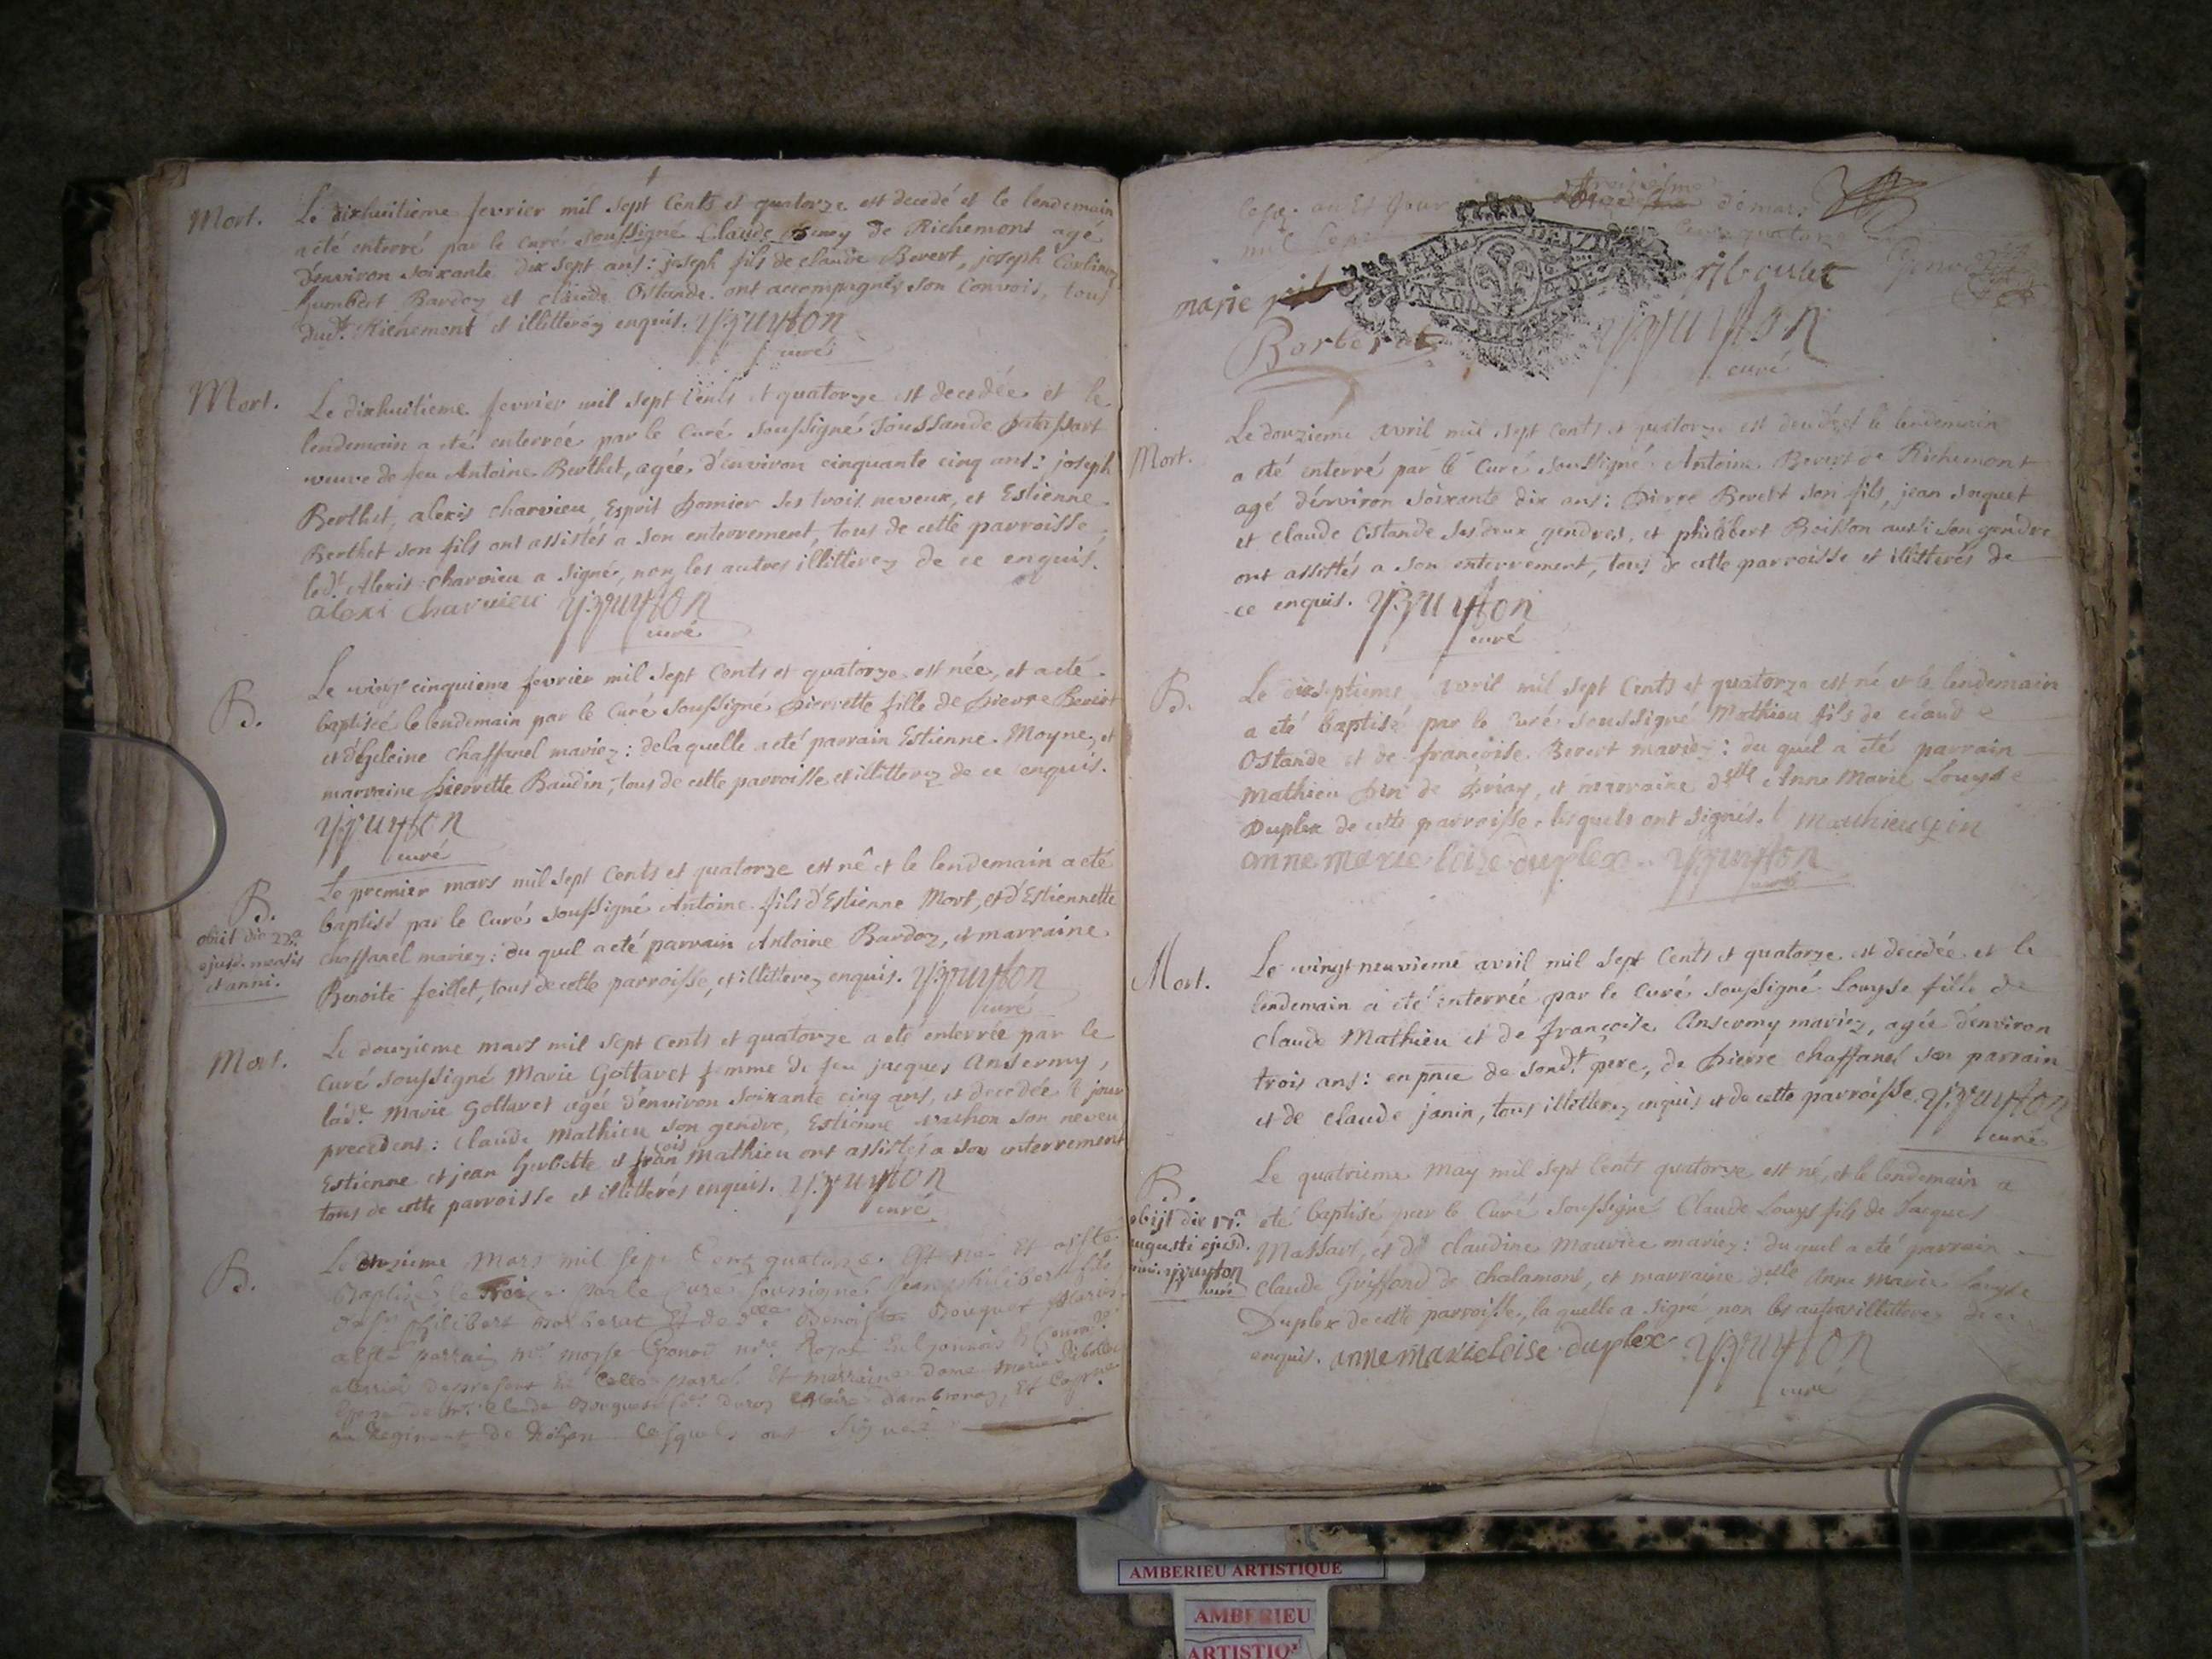 Mort.
Le dixhuitieme fevrier mil sept Cents et quatorze est decedé et le lendemain
a été enterré par le curé soussigné Claude de Richemont agé
d'environ soixante dix sept ans : joseph fils de claude Bevert, joseph
Humbert Bardoz et claude Ostande ont accompagnés son Convois, tous
dud.t Richemont et illitterez enquis. Guyton
curé
Mort.
Le dixhuitieme fevrier mil sept Cents et quatorze est decedée et le
lendemain a été enterrée par le Curé soussigné
veuve de feu Antoine Berthet, agée d'environ cinquante cinq ans : joseph
Berthet, alexis charvieu, Esprit pomier ses trois neveux, et Estienne
Berthet son fils ont assistés a son enterrement, tous de cette parroisse
led.t Alexis Charvieu a signé, non les autres illitterez de ce enquis.
alexi charvieu Guyton
curé
B.
Le vingt cinquieme fevrier mil sept Cents et quatorze est née, et a été
baptisée le lendemain par le Curé soussigné pierrette fille de pierre Bevert
et chaffanel mariez : de la quelle a été parrain Estienne Moyne, et
marraine pierrette Baudin, tous de cette parroisse et illitterez de ce enquis.
Guyton
curé
B.
obiit die 22a
ejusd. mensis
et anni.
Le premier mars mil sept Cents et quatorze est né et le lendemain a été
baptisé par le Curé soussigné Antoine fils d'Estienne Mort, et d'Estiennette
chaffanel mariez : du quel a été parrain Antoine Bardoz, et marraine
Benoite feillet, tous de cette parroisse, et illitterez enquis. Guyton
curé
Mort.
Le douzieme mars mil sept Cents et quatorze a été enterrée par le
Curé soussigné Marie Gottavet femme de feu jacques Ansermy,
lad.e Marie Gottavet agée d'environ soixante cinq ans, et decedée le jour
precedent : Claude Mathieu son gendre, Estienne vachon son neveu
Estienne et jean Gerbette et francois Mathieu ont assistés a son enterrement
tous de cette parroisse et illitterés enquis. Guyton
curé
B.
Le mars mil sept Cent quatorze est né et a esté
Baptizé le par le Curé soussigné jean philibert fils
de philibert Barberat et de Benoiste Bouquet mariés
a esté parrain moyse Royal
de present en cette parr. et marraine dame marie
Claude d'ambronay, et
au Regiment de lesquels ont signé
an et jour de mars
mil sept cens quatorze
marie riboulet
Barberat Guyton
curé
Mort.
Le douziéme avril mil sept Cents et quatorze est decedé et le lendemain
a été enterré par le Curé soussigné Antoine Bevert de Richemont
agé d'environ soixante dix ans : pierre Bevert son fils, jean
et claude Ostande ses deux gendres, et philibert Boisson aussi son gendre
ont assistés a son enterrement, tous de cette parroisse et illitterés de
ce enquis. Guyton
curé
B.
Le dixseptieme avril mil sept Cents et quatorze est né et le lendemain
a été baptisé par le Curé soussigné Mathieu fils de claude
Ostande et de françoise Bevert mariez : du quel a été parrain
Mathieu de Priay, et marraine d.elle Anne Marie Louyse
Duplex de cette parroisse, lesquels ont signés. mathieu
anne marie loise duplex Guyton
curé
Mort.
Le vingt neuvieme avril mil sept Cents et quatorze est decedée et le
lendemain a été enterrée par le Curé soussigné Louyse fille de
claude Mathieu et de françoise Ansermy mariez, agée d'environ
trois ans : en pnce de sond.t pere, de pierre chaffanel son parrain
et de claude janin, tous illitterez enquis et de cette parroisse. Guyton
curé
B.
obijt die 17a
augusti ejusd.
anni. Guyton
curé
Le quatrieme May mil sept Cents quatorze est né, et le lendemain a
été baptisé par le Curé soussigné Claude Louys fils de Jacques
Massart, et de claudine Mauvier mariez : du quel a été parrain
claude Griffond de chalamont, et marraine d.elle Anne Marie Louyse
Duplex de cette parroisse, la quelle a signé non les autres illitterez de ce
enquis. anne marie loise duplex Guyton
curé
AMBERIEU ARTISTIQUE
AMBERIEU
ARTISTIQ